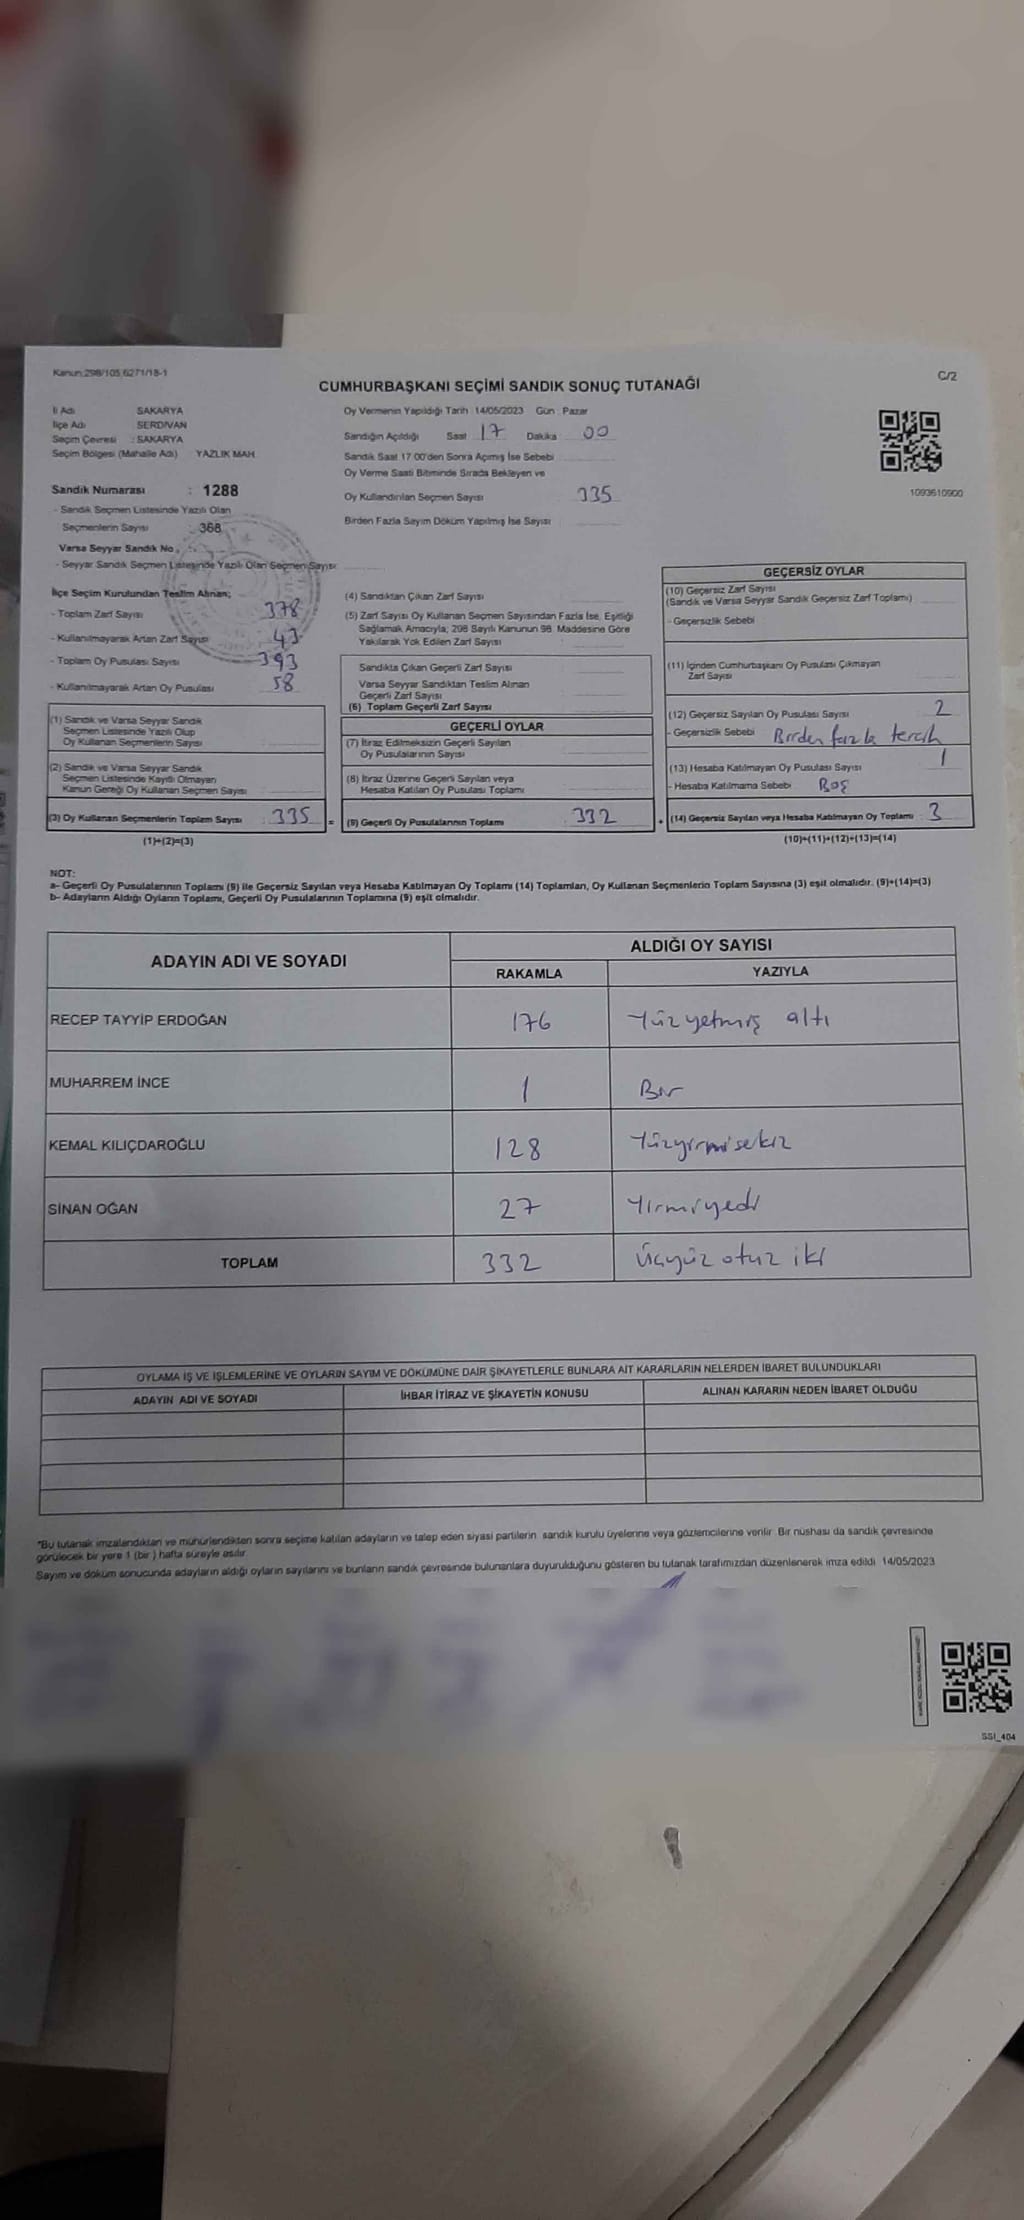 Kanun:298/105,6271/18-1
C/2
CUMHURBAŞKANI SEÇİMİ SANDIK SONUÇ TUTANAĞI
İl Adı SAKARYA
İlçe Adı SERDİVAN
Seçim Çevresi : SAKARYA
Seçim Bölgesi (Mahalle Adı) YAZLIK MAH.
Oy Vermenin Yapıldığı Tarih : 14/05/2023 Gün : Pazar
Sandığın Açıldığı Saat 17 Dakika 00
Sandık Saat 17.00'den Sonra Açımış İse Sebebi
Oy Verme Saati Bitiminde Sırada Bekleyen ve
Oy Kullandırılan Seçmen Sayısı 335
Birden Fazla Sayım Döküm Yapılmış İse Sayısı
1093610900
Sandık Numarası : 1288
- Sandık Seçmen Listesinde Yazılı Olan
Seçmenlerin Sayısı : 368
Varsa Seyyar Sandık No :
- Seyyar Sandık Seçmen Listesinde Yazılı Olan Seçmen Sayısı
İlçe Seçim Kurulundan Teslim Alınan;
- Toplam Zarf Sayısı 378
- Kullanılmayarak Artan Zarf Sayısı 43
- Toplam Oy Pusulası Sayısı 393
- Kullanılmayarak Artan Oy Pusulası 58
(1) Sandık ve Varsa Seyyar Sandık
Seçmen Listesinde Yazılı Olup
Oy Kullanan Seçmenlerin Sayısı
(2) Sandık ve Varsa Seyyar Sandık
Seçmen Listesinde Kayıtlı Olmayan
Kanun Gereği Oy Kullanan Seçmen Sayısı
(3) Oy Kullanan Seçmenlerin Toplam Sayısı 335 =
(1)+(2)=(3)
(4) Sandıktan Çıkan Zarf Sayısı
(5) Zarf Sayısı Oy Kullanan Seçmen Sayısından Fazla İse, Eşitliği
Sağlamak Amacıyla; 298 Sayılı Kanunun 98. Maddesine Göre
Yakılarak Yok Edilen Zarf Sayısı
Sandıkta Çıkan Geçerli Zarf Sayısı
Varsa Seyyar Sandıktan Teslim Alınan
Geçerli Zarf Sayısı
(6) Toplam Geçerli Zarf Sayısı
GEÇERLİ OYLAR
(7) İtiraz Edilmeksizin Geçerli Sayılan
Oy Pusulalarının Sayısı
(8) İtiraz Üzerine Geçerli Sayılan veya
Hesaba Katılan Oy Pusulası Toplamı
(9) Geçerli Oy Pusulalarının Toplamı 332 +
GEÇERSİZ OYLAR
(10) Geçersiz Zarf Sayısı
(Sandık ve Varsa Seyyar Sandık Geçersiz Zarf Toplamı)
- Geçersizlik Sebebi
(11) İçinden Cumhurbaşkanı Oy Pusulası Çıkmayan
Zarf Sayısı
(12) Geçersiz Sayılan Oy Pusulası Sayısı 2
- Geçersizlik Sebebi Birden fazla tercih
(13) Hesaba Katılmayan Oy Pusulası Sayısı 1
- Hesaba Katılmama Sebebi Boş
(14) Geçersiz Sayılan veya Hesaba Katılmayan Oy Toplamı 3
(10)+(11)+(12)+(13)=(14)
NOT:
a- Geçerli Oy Pusulalarının Toplamı (9) ile Geçersiz Sayılan veya Hesaba Katılmayan Oy Toplamı (14) Toplamları, Oy Kullanan Seçmenlerin Toplam Sayısına (3) eşit olmalıdır. (9)+(14)=(3)
b- Adayların Aldığı Oyların Toplamı, Geçerli Oy Pusulalarının Toplamına (9) eşit olmalıdır.
ADAYIN ADI VE SOYADI ALDIĞI OY SAYISI
RAKAMLA YAZIYLA
RECEP TAYYİP ERDOĞAN 176 Yüzyetmiş altı
MUHARREM İNCE 1 Bir
KEMAL KILIÇDAROĞLU 128 Yüzyirmisekiz
SİNAN OĞAN 27 Yirmiyedi
TOPLAM 332 Üçyüz otuz iki
OYLAMA İŞ VE İŞLEMLERİNE VE OYLARIN SAYIM VE DÖKÜMÜNE DAİR ŞİKAYETLERLE BUNLARA AİT KARARLARIN NELERDEN İBARET BULUNDUKLARI
ADAYIN ADI VE SOYADI İHBAR İTİRAZ VE ŞİKAYETİN KONUSU ALINAN KARARIN NEDEN İBARET OLDUĞU
"Bu tutanak imzalandıktan ve mühürlendikten sonra seçime katılan adayların ve talep eden siyasi partilerin sandık kurulu üyelerine veya gözlemcilerine verilir. Bir nüshası da sandık çevresinde
görülecek bir yere 1 (bir ) hafta süreyle asılır.
Sayım ve döküm sonucunda adayların aldığı oyların sayılarını ve bunların sandık çevresinde bulunanlara duyurulduğunu gösteren bu tutanak tarafımızdan düzenlenerek imza edildi. 14/05/2023
SSI_404